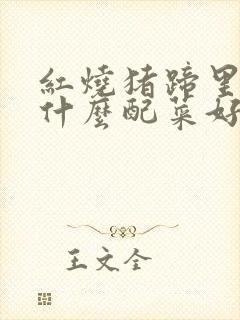 紅燒猪蹄里
什麼配菜好
王文全